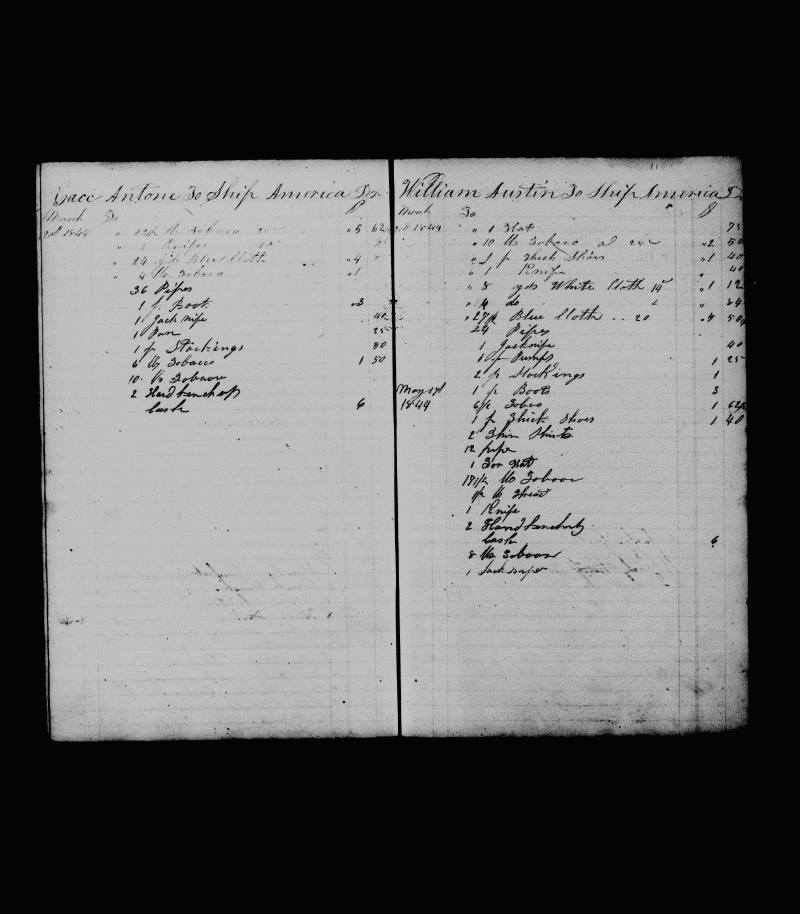 Antone To Ship America Dr
March To $
1844 " 22½ lb Tobacco "5 62
" 2 Knifes
" 24 yds Blue Cloth "4
" 4 lb Tobacco "1
36 Pipes
1 p Boot "3
1 Jack nife 40
1 Pan 25
1 p Stockings 50
6 lb Tobacco 1 50
10 lb Tobacco
2 Handkencheifs
Cash 6
William Austin To Ship America Dr
March To $
1844 " 1 Hat 75
" 10 lb Tobaco at 25 "2 50
" 1 p thick Shoes "1 40
" 1 Knife " 40
" 8 yds White Cloth 14 "1 12
" 4 do "
" 27½ Blue Cloth .. 20 "5 50
24 Pipes
1 Jacknife 40
1 p Pumps 1 25
2 p Stockings 1
1 p Boots 3
May 1844 6½ Tobaco 1 62½
1 p Thick Shoes 1 40
2 Shirts
12 pipe
1 Hat
18½ lb Tobacco
½ lb Thread
1 Knife
2 Handkencheifs
Cash 6
8 lb Tobacco
1 Jack nife